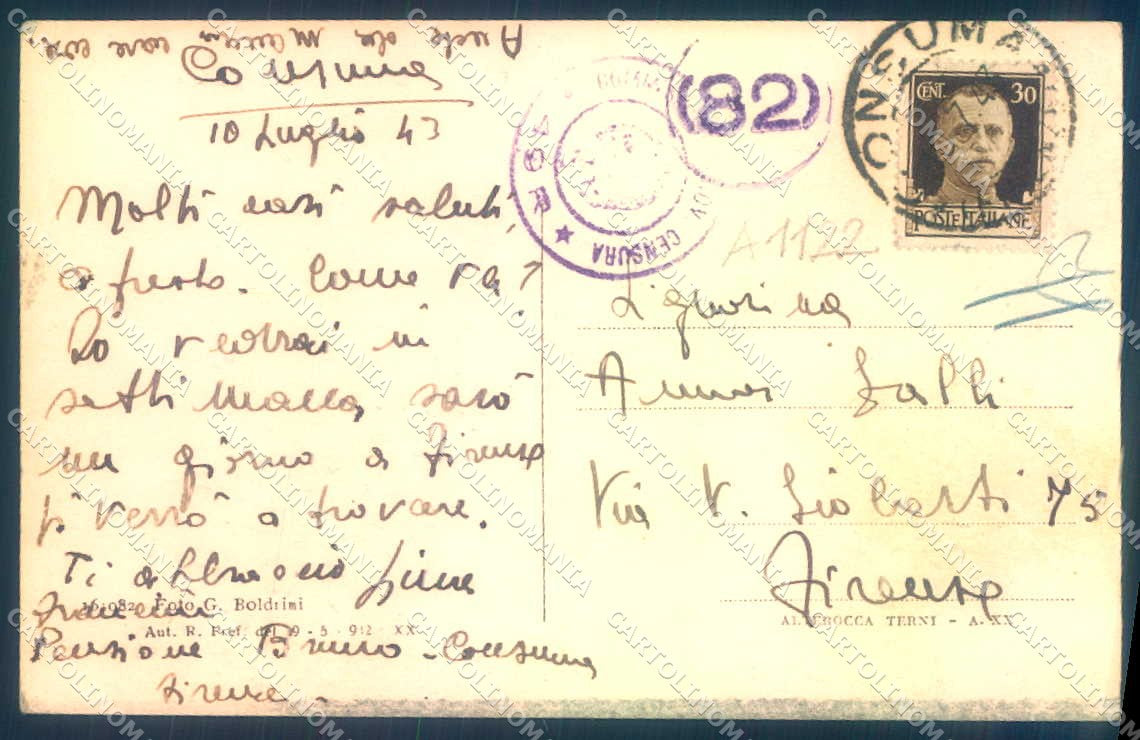 Anche alla Mamma care cose.
Consuma
10 Luglio 43
Molti cari saluti,
a presto. Come va?
Ci vedrai in
settimana, sarò
un giorno a Firenze
ti verrò a trovare.
Ti abbraccio
16-982 - Foto G. Boldrini
Aut. R. Pref. del 9 - 5 - 942 - XX
Pensione Bruno - Consuma
Firenze -
CENSURA
49 R
(82)
CONSUMA
CENT. 30
POSTE ITALIANE
A1122
Signorina
Anna Galli
Via V. Gioberti 75
Firenze
ALTEROCCA TERNI - A. XX
CARTOLINOMANIA